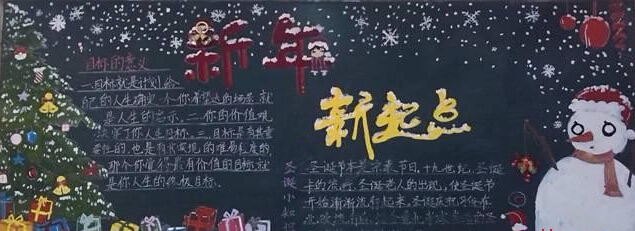 新年
新起点
目标的意义
一.目标就是计划,给
自己的人生确定一个你希望达的场景,就
是人生的志示。二.你的价值观
决定了你人生目标。三.目标是有其重
要性的,也是有其实现的难易程度的,
那个你觉得最有价值的目标,就
是你人生的终极目标。
圣诞小知识
圣诞节本是宗教节日,十九世纪,圣诞
卡的流行,圣诞老人的出现,使圣诞节
开始渐渐流行起来。圣诞庆祝习俗在